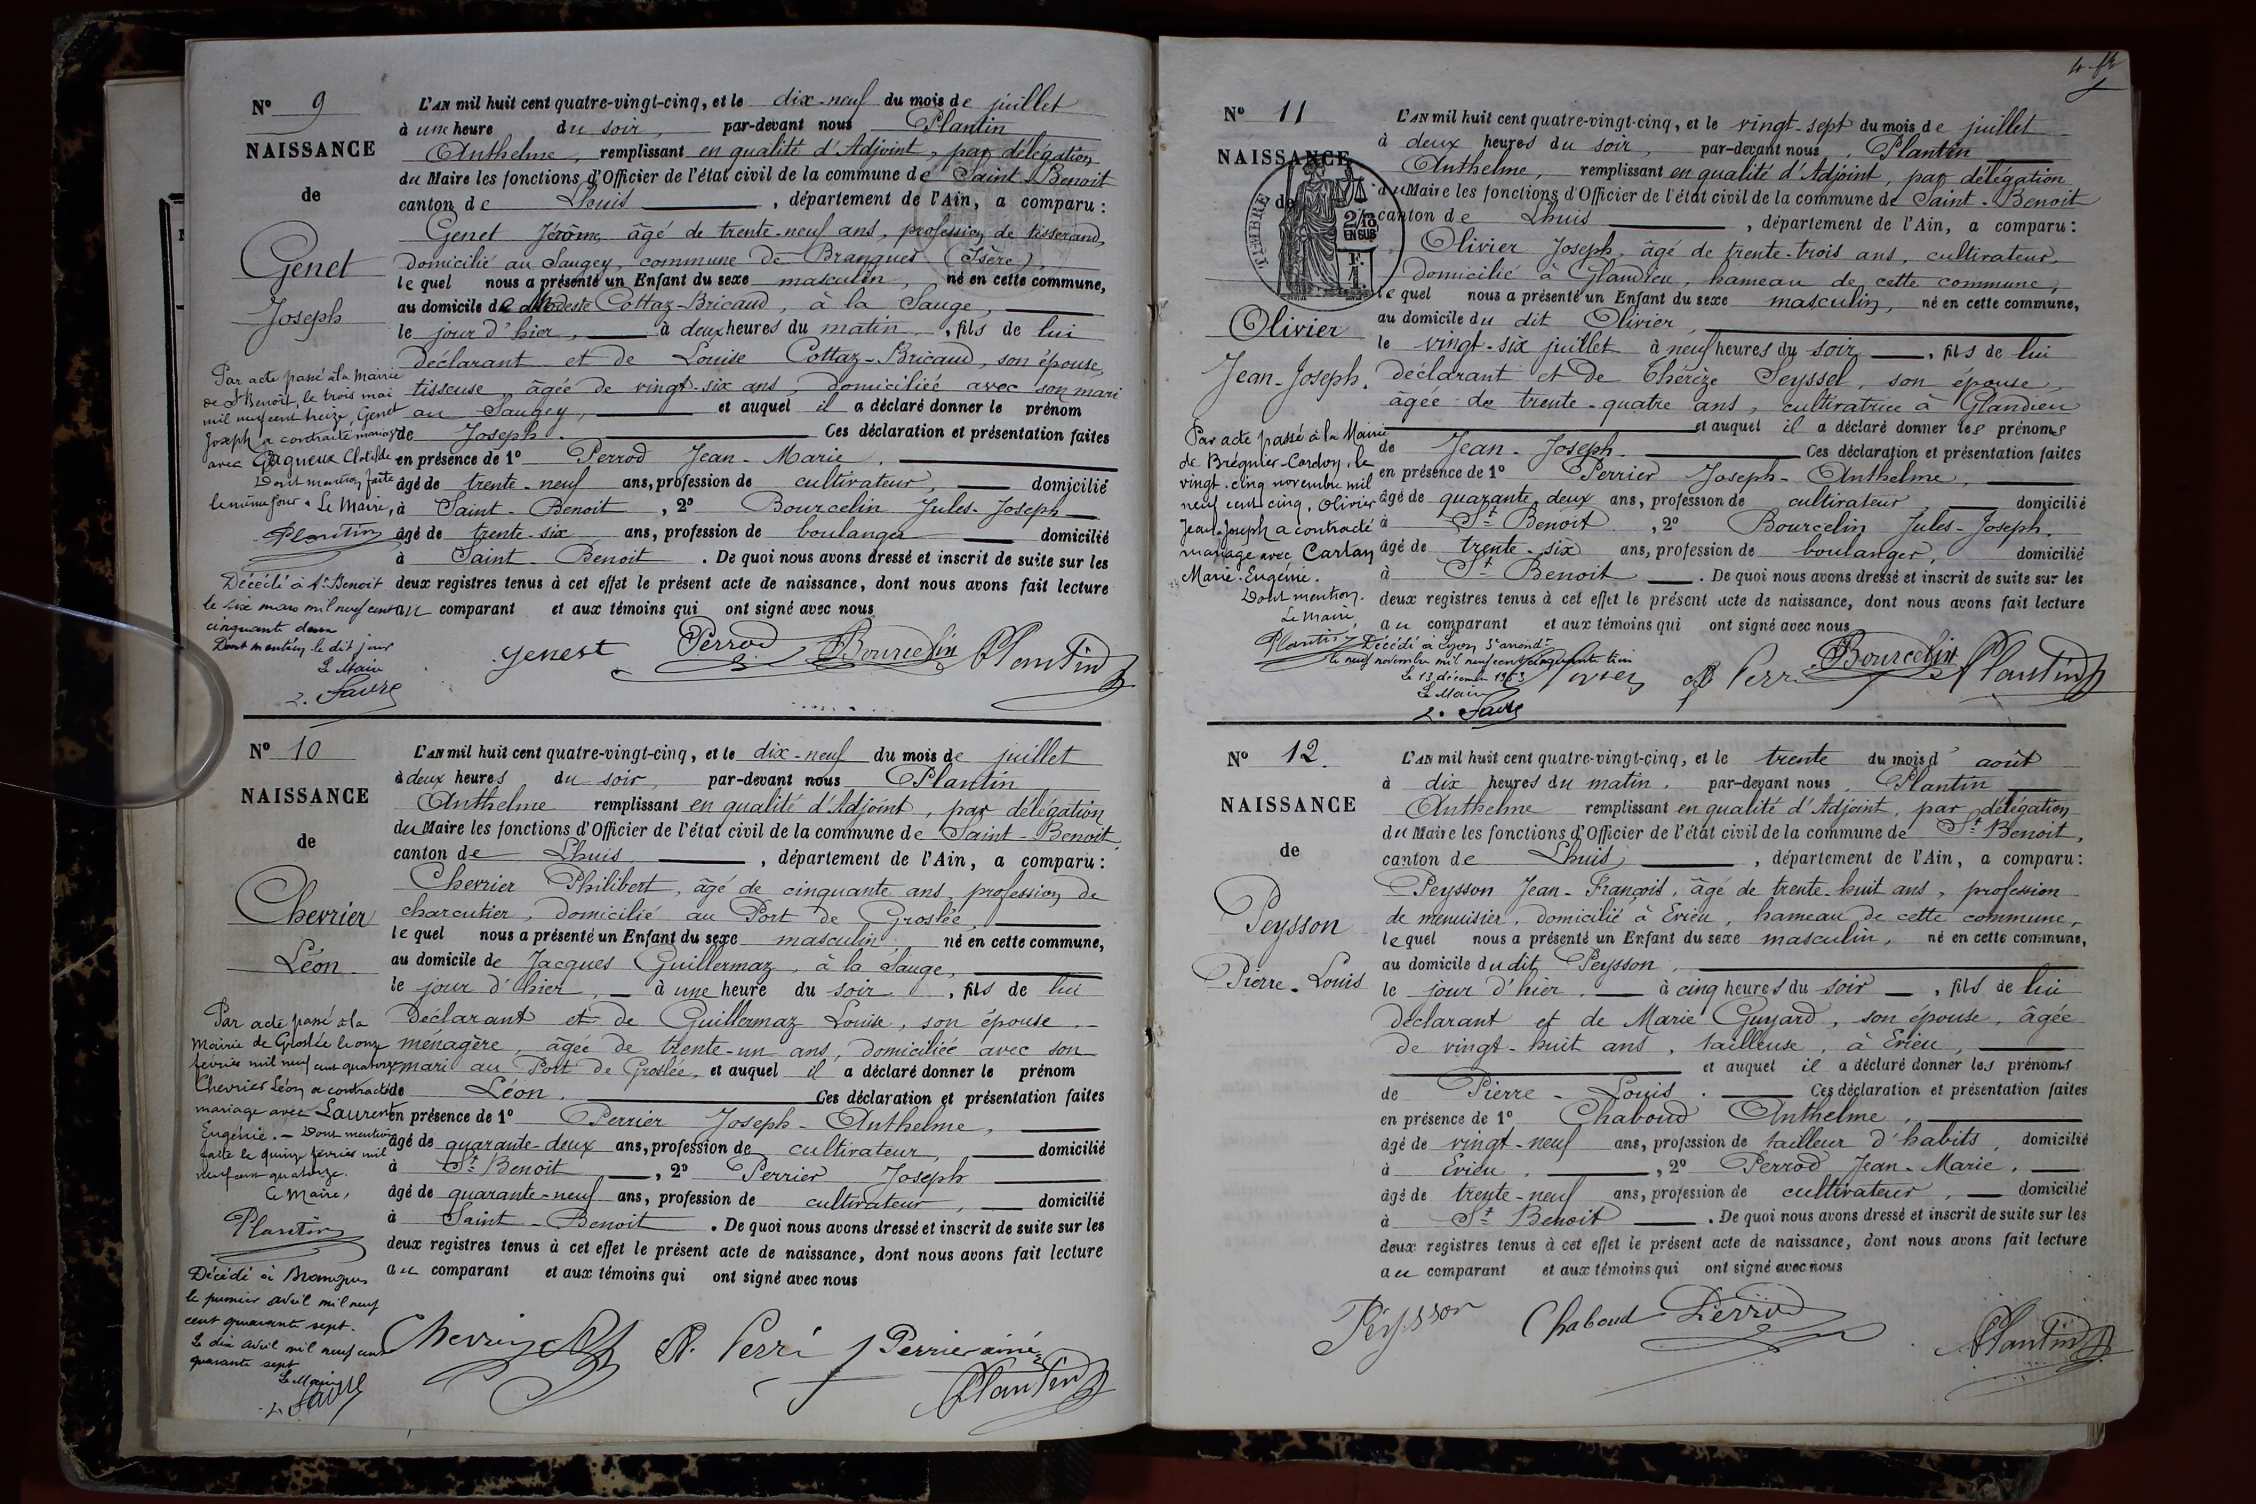 N° 9
NAISSANCE
de
Genet
Joseph
Par acte passé à la Mairie
de St Benoit, le trois mai
mil neuf cent treize, Genet
Joseph a contracté mariage
avec Clotilde
Dont mention faite
le même jour. Le Maire,
Plantin
Décédé à St Benoit
le six mars mil neuf cent
cinquante deux
Dont mention le dit jour
Le Maire
L. Favre
L'AN mil huit cent quatre-vingt-cinq, et le dix-neuf du mois de juillet
à une heure du soir, par-devant nous Plantin
Anthelme, remplissant en qualité d'Adjoint, par délégation
du Maire les fonctions d'Officier de l'état civil de la commune de Saint-Benoit
canton de Lhuis, département de l'Ain, a comparu :
Genet Jérôme, âgé de trente-neuf ans, profession de tisserand,
domicilié au Saugey, commune de Brangues (Isère),
lequel nous a présenté un Enfant du sexe masculin, né en cette commune,
au domicile de Modeste Cottaz-Bricaud, à la Sauge,
le jour d'hier, à deux heures du matin, fils de lui
déclarant et de Louise Cottaz-Bricaud, son épouse,
tisseuse, âgée de vingt-six ans, domiciliée avec son mari
au Saugey, et auquel il a déclaré donner le prénom
de Joseph. Ces déclaration et présentation faites
en présence de 1° Perrod Jean-Marie,
âgé de trente-neuf ans, profession de cultivateur, domicilié
à Saint-Benoit, 2° Bourcelin Jules-Joseph
âgé de trente-six ans, profession de boulanger domicilié
à Saint-Benoit. De quoi nous avons dressé et inscrit de suite sur les
deux registres tenus à cet effet le présent acte de naissance, dont nous avons fait lecture
au comparant et aux témoins qui ont signé avec nous
genest Perrod Bourcelin Plantin
N° 10
NAISSANCE
de
Chevrier
Léon
Par acte passé à la
Mairie de Groslée le onze
février mil neuf cent quatorze
Chevrier Léon a contracté
mariage avec Laurent
Eugénie. – Dont mention
faite le quinze février mil
neuf cent quatorze.
Le Maire,
Plantin
Décédé à Brangues
le premier avril mil neuf
cent quarante sept.
Le dix avril mil neuf cent
quarante sept
Le Maire
L. Favre
L'AN mil huit cent quatre-vingt-cinq, et le dix-neuf du mois de juillet
à deux heures du soir, par-devant nous Plantin
Anthelme remplissant en qualité d'Adjoint, par délégation
du Maire les fonctions d'Officier de l'état civil de la commune de Saint-Benoit,
canton de Lhuis, département de l'Ain, a comparu :
Chevrier Philibert, âgé de cinquante ans, profession de
charcutier, domicilié au Port de Groslée,
lequel nous a présenté un Enfant du sexe masculin, né en cette commune,
au domicile de Jacques Guillermaz, à la Sauge,
le jour d'hier, à une heure du soir, fils de lui
Déclarant et de Guillermaz Louise, son épouse
ménagère, âgée de trente-un ans, domiciliée avec son
mari au Port de Groslée, et auquel il a déclaré donner le prénom
de Léon. Ces déclaration et présentation faites
en présence de 1° Perrier Joseph-Anthelme,
âgé de quarante-deux ans, profession de cultivateur, domicilié
à St Benoit, 2° Perrier Joseph
âgé de quarante-neuf ans, profession de cultivateur, domicilié
à Saint-Benoit. De quoi nous avons dressé et inscrit de suite sur les
deux registres tenus à cet effet le présent acte de naissance, dont nous avons fait lecture
au comparant et aux témoins qui ont signé avec nous
Chevrier A. Perri J Perrier ainé
Plantin
N° 11
NAISSANCE
de
TIMBRE
2/10
EN SUS
Olivier
Jean-Joseph.
Par acte passé à la Mairie
de Brégnier-Cordon, le
vingt-cinq novembre mil
neuf cent cinq, Olivier
Jean-Joseph a contracté
mariage avec Cartan
Marie-Eugénie.
Dont mention.
Le Maire,
Plantin
Décédé à Lyon 5e arrondt
le neuf novembre mil neuf cent cinquante trois
Le 13 décembre 1953
Le Maire
L. Favre
L'AN mil huit cent quatre-vingt-cinq, et le vingt-sept du mois de juillet
à deux heures du soir, par-devant nous, Plantin
Anthelme, remplissant en qualité d'Adjoint, par délégation
du Maire les fonctions d'Officier de l'état civil de la commune de Saint-Benoit
canton de Lhuis, département de l'Ain, a comparu :
Olivier Joseph, âgé de trente-trois ans, cultivateur,
domicilié à Glandieu, hameau de cette commune,
lequel nous a présenté un Enfant du sexe masculin, né en cette commune,
au domicile du dit Olivier,
le vingt-six juillet à neuf heures du soir, fils de lui
déclarant et de Thérèze Seyssel, son épouse,
âgée de trente-quatre ans, cultivatrice à Glandieu
et auquel il a déclaré donner les prénoms
de Jean-Joseph. Ces déclaration et présentation faites
en présence de 1° Perrier Joseph-Anthelme,
âgé de quarante deux ans, profession de cultivateur, domicilié
à St Benoit, 2° Bourcelin Jules-Joseph,
âgé de trente-six ans, profession de boulanger, domicilié
à St Benoit. De quoi nous avons dressé et inscrit de suite sur les
deux registres tenus à cet effet le présent acte de naissance, dont nous avons fait lecture
au comparant et aux témoins qui ont signé avec nous
A Perri Bourcelin Plantin
N° 12.
NAISSANCE
de
Peysson
Pierre-Louis
L'AN mil huit cent quatre-vingt-cinq, et le trente du mois d'août
à dix heures du matin, par-devant nous, Plantin
Anthelme remplissant en qualité d'Adjoint, par délégation
du Maire les fonctions d'Officier de l'état civil de la commune de St Benoit,
canton de Lhuis, département de l'Ain, a comparu :
Peysson Jean-François, âgé de trente-huit ans, profession
de menuisier, domicilié à Evieu, hameau de cette commune,
lequel nous a présenté un Enfant du sexe masculin, né en cette commune,
au domicile dudit Peysson,
le jour d'hier, à cinq heures du soir, fils de lui
déclarant et de Marie Guyard, son épouse, âgée
de vingt-huit ans, tailleuse, à Evieu,
et auquel il a déclaré donner les prénoms
de Pierre-Louis. Ces déclaration et présentation faites
en présence de 1° Chaboud Anthelme,
âgé de vingt-neuf ans, profession de tailleur d'habits, domicilié
à Evieu, 2° Perrod Jean-Marie,
âgé de trente-neuf ans, profession de cultivateur, domicilié
à St Benoit. De quoi nous avons dressé et inscrit de suite sur les
deux registres tenus à cet effet le présent acte de naissance, dont nous avons fait lecture
au comparant et aux témoins qui ont signé avec nous
Peysson Chaboud Perrod
Plantin